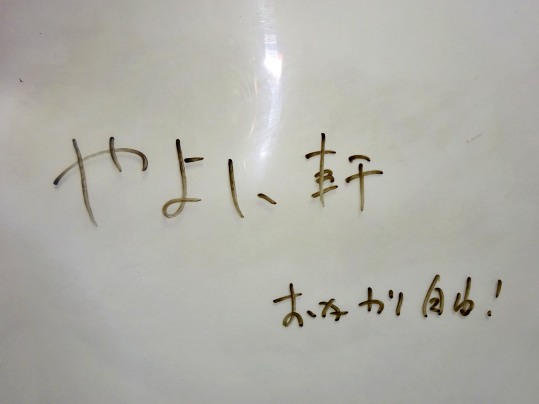 やよい軒
おかわり自由!